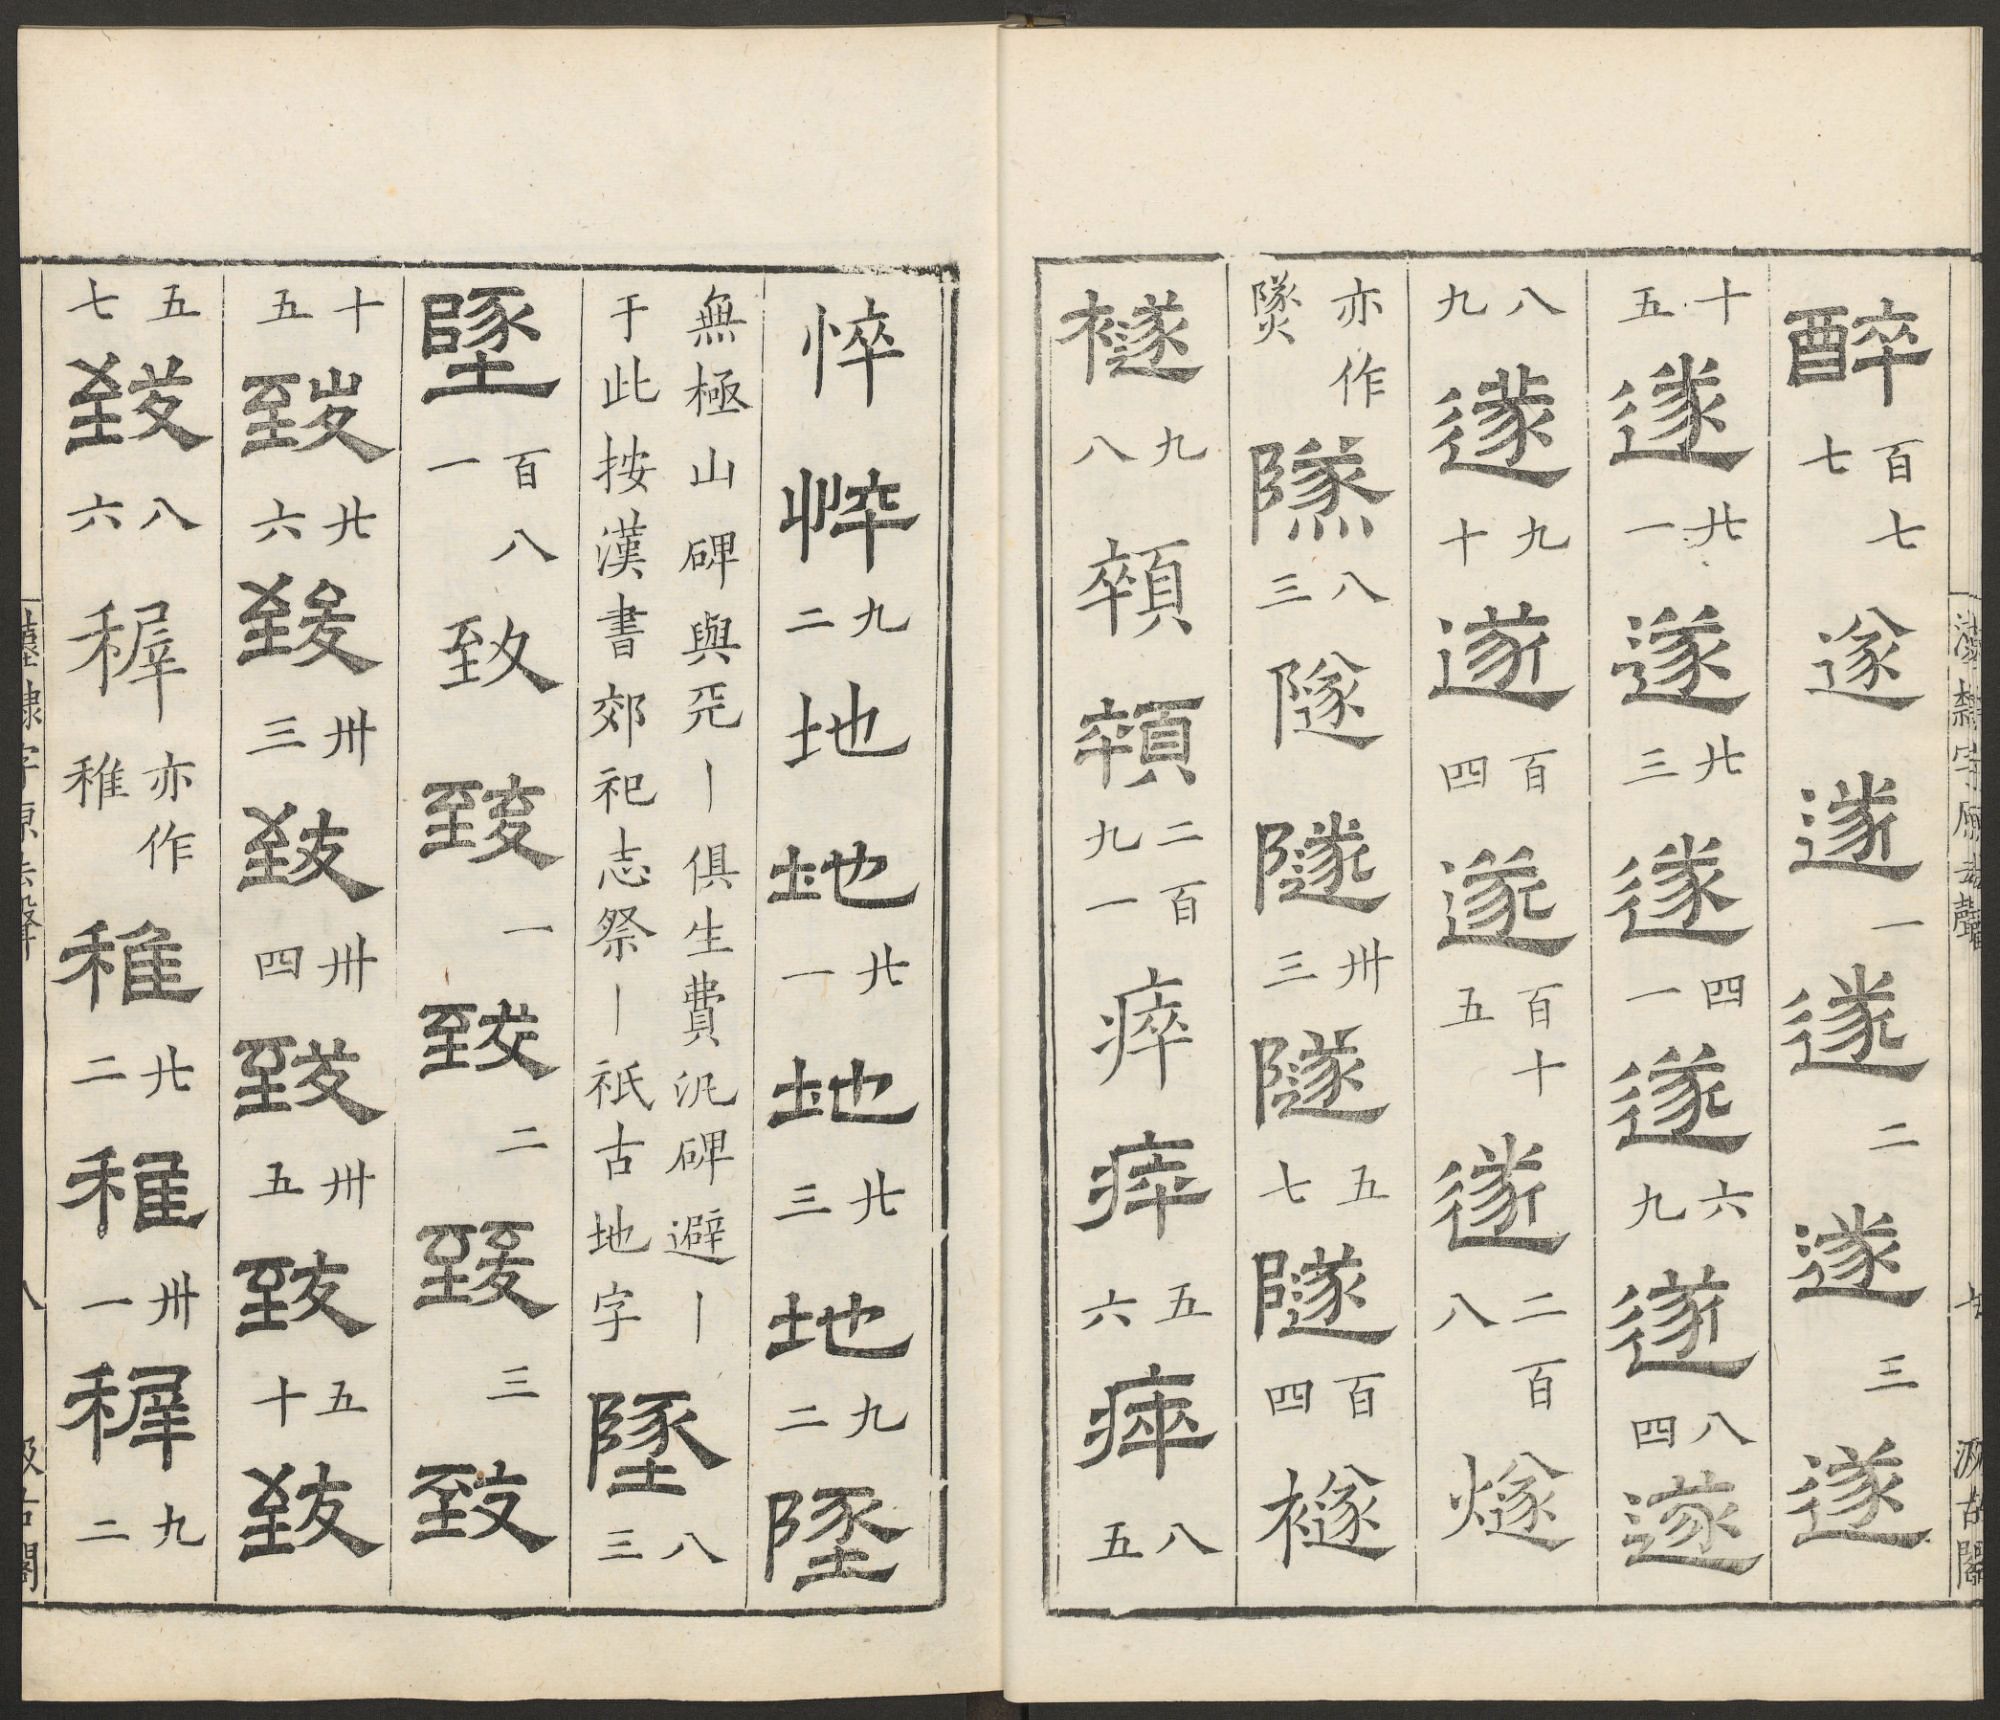 醉百七七遂遂一遂二遂三遂
十五遂廿一遂廿三遂四一遂六九遂八四遂
八九遂九十遂百四遂百十五遂二百八燧
亦作䥙隧八三隧隧卅三隧五七隧百四襚
襚九八顇顇二百九一瘁瘁五六瘁八五
漢隸字原去聲 七 汲古閣
悴悴九二地地廿一地廿三地九二墜
無極山碑與死丨俱生費汎碑避丨
于此按漢書郊祀志祭丨祇古地字墜八三
墜百八一致致一致二致三致
十五致廿六致卅三致卅四致卅五致五十致
五七致八六稺亦作稚稚廿二稚卅一稺九二
漢隸字原去聲 八 汲古閣